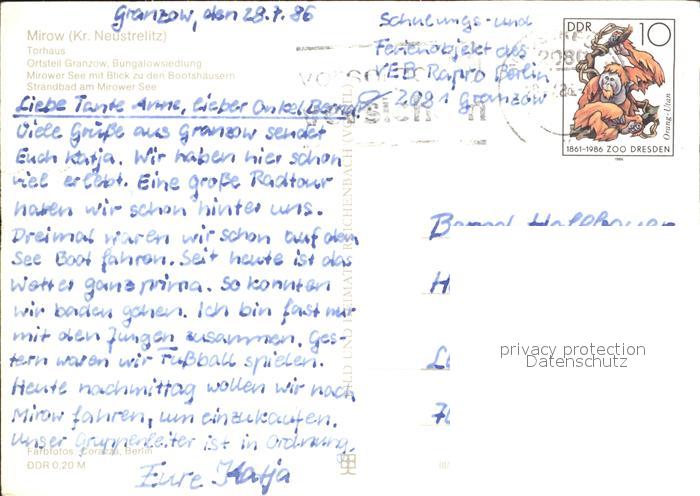 Granzow, den 28.7.86
Mirow (Kr. Neustrelitz)
Torhaus
Ortsteil Granzow, Bungalowsiedlung
Mirower See mit Blick zu den Bootshäusern
Strandbad am Mirower See
Schulungs- und
Ferienobjekt des
VEB Rapro Berlin
2081 Granzow
DDR 10
Orang-Utan
1861-1986 ZOO DRESDEN
1986
Liebe Tante Anne, lieber Onkel Bernd,
Viele Grüße aus Granzow sendet
Euch Katja. Wir haben hier schon
viel erlebt. Eine große Radtour
haben wir schon hinter uns.
Dreimal waren wir schon auf dem
See Boot fahren. Seit heute ist das
Wetter ganz prima. So konnten
wir baden gehen. Ich bin fast nur
mit den Jungen zusammen. Ges-
tern waren wir Fußball spielen.
Heute nachmittag wollen wir nach
Mirow fahren, um einzukaufen.
Unser Gruppenleiter ist in Ordnung.
Eure Katja
Farbfotos: Corazza, Berlin
DDR 0,20 M
BILD UND HEIMAT REICHENBACH
privacy protection
Datenschutz